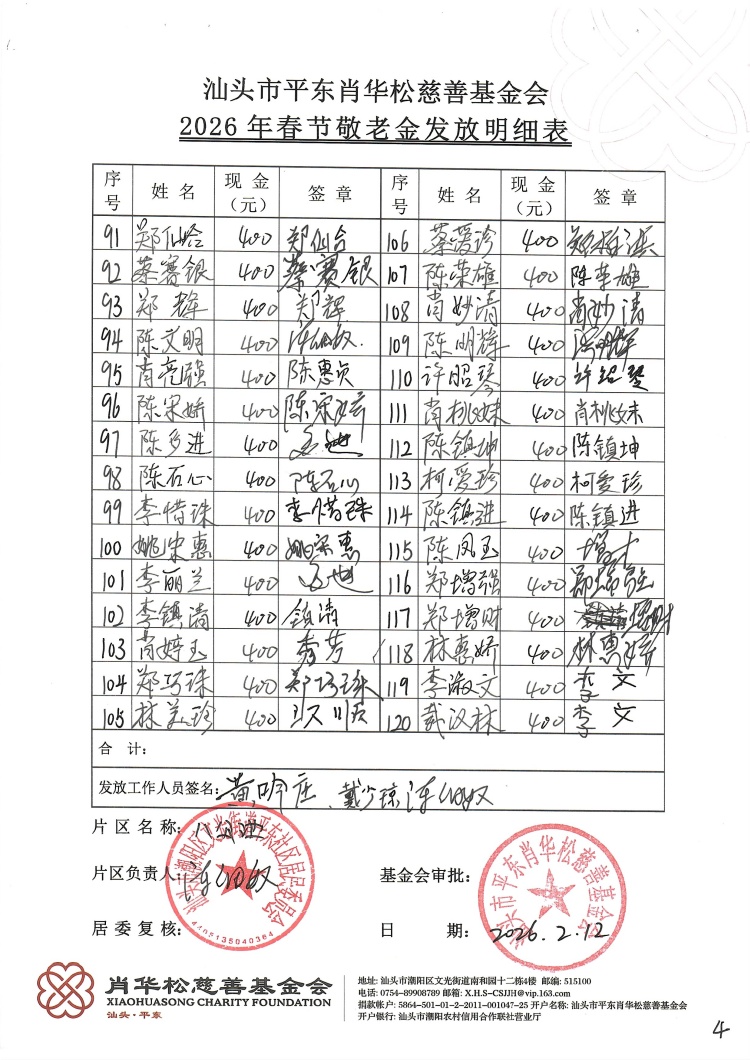 汕头市平东肖华松慈善基金会
2026年春节敬老金发放明细表
序号 姓名 现金(元) 签章 序号 姓名 现金(元) 签章
91 郑仙哈 400 郑仙合 106 蔡爱珍 400
92 蔡赛银 400 蔡赛银 107 陈荣雄 400 陈荣雄
93 郑辉 400 郑辉 108 肖妙清 400 肖妙清
94 陈文明 400 109 陈明辉 400
95 肖亮强 400 陈惠贞 110 许昭琴 400
96 陈宋娇 400 陈宋娇 111 肖桃妹 400 肖桃妹
97 陈乡进 400 112 陈镇坤 400 陈镇坤
98 陈石心 400 陈石心 113 柯爱珍 400 柯爱珍
99 李惜珠 400 李惜珠 114 陈镇进 400 陈镇进
100 姚宋惠 400 姚宋惠 115 陈凤玉 400
101 李丽兰 400 116 郑增强 400 郑增强
102 李镇清 400 镇清 117 郑增财 400 增财
103 肖婷玉 400 秀芳 118 林惠娇 400 林惠娇
104 郑巧珠 400 郑巧珠 119 李淑文 400 李文
105 林美珍 400 120 戴汉林 400 李文
合 计:
发放工作人员签名: 黄吟庄、戴少琼
片区名称:
片区负责人:
基金会审批:
居委复核:
日 期: 2026.2.12
汕头市潮阳区文光街道平东社区居民委员会
4405135040364
汕头市平东肖华松慈善基金会
肖华松慈善基金会
XIAOHUASONG CHARITY FOUNDATION
汕头·平东
地址: 汕头市潮阳区文光街道南和园十二栋4楼 邮编: 515100
电话: 0754-89908789 邮箱: X.H.S-CSJJH@vip.163.com
捐款帐户: 5864-501-01-2-2011-001047-25 开户名称: 汕头市平东肖华松慈善基金会
开户银行: 汕头市潮阳农村信用合作联社营业厅
4